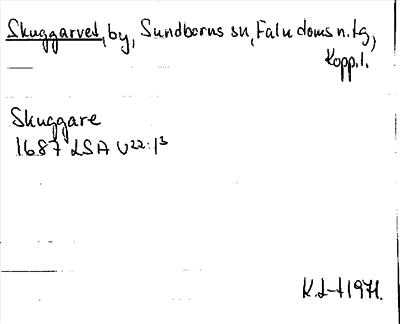 Skuggarvet, by, Sundborns sn, Falu doms n. tg,
Kopp. l.
Skuggare
1687 LSA U22:1³
K.L-t 1971.